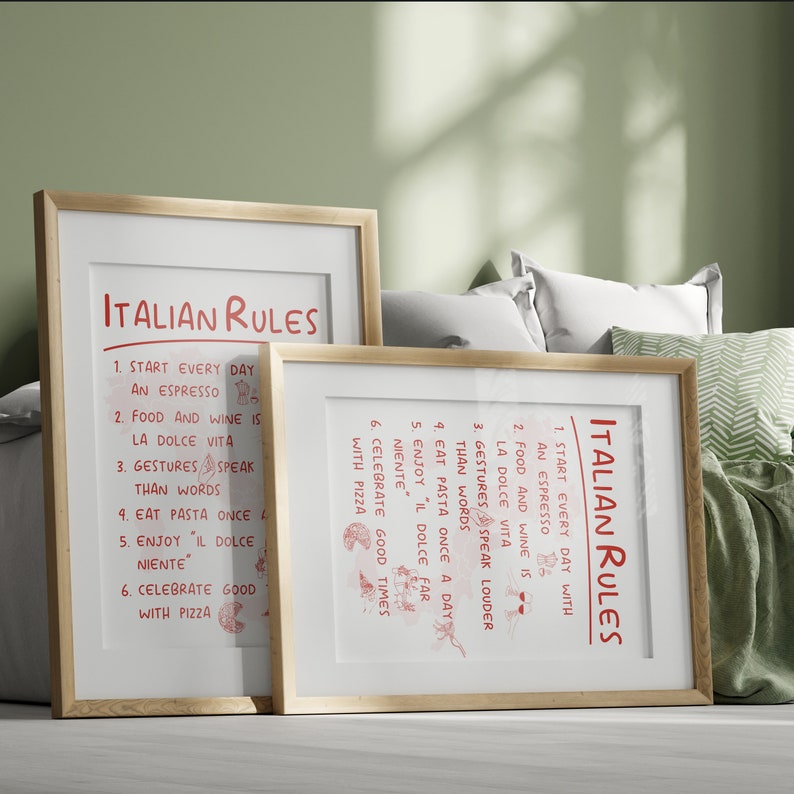 ITALIAN RULES
1. START EVERY DAY
AN ESPRESSO
2. FOOD AND WINE IS
LA DOLCE VITA
3. GESTURES SPEAK
THAN WORDS
4. EAT PASTA ONCE A
5. ENJOY "IL DOLCE
NIENTE"
6. CELEBRATE GOOD
WITH PIZZA
ITALIAN RULES
1. START EVERY DAY WITH
AN ESPRESSO
2. FOOD AND WINE IS
LA DOLCE VITA
3. GESTURES SPEAK LOUDER
THAN WORDS
4. EAT PASTA ONCE A DAY
5. ENJOY "IL DOLCE FAR
NIENTE"
6. CELEBRATE GOOD TIMES
WITH PIZZA